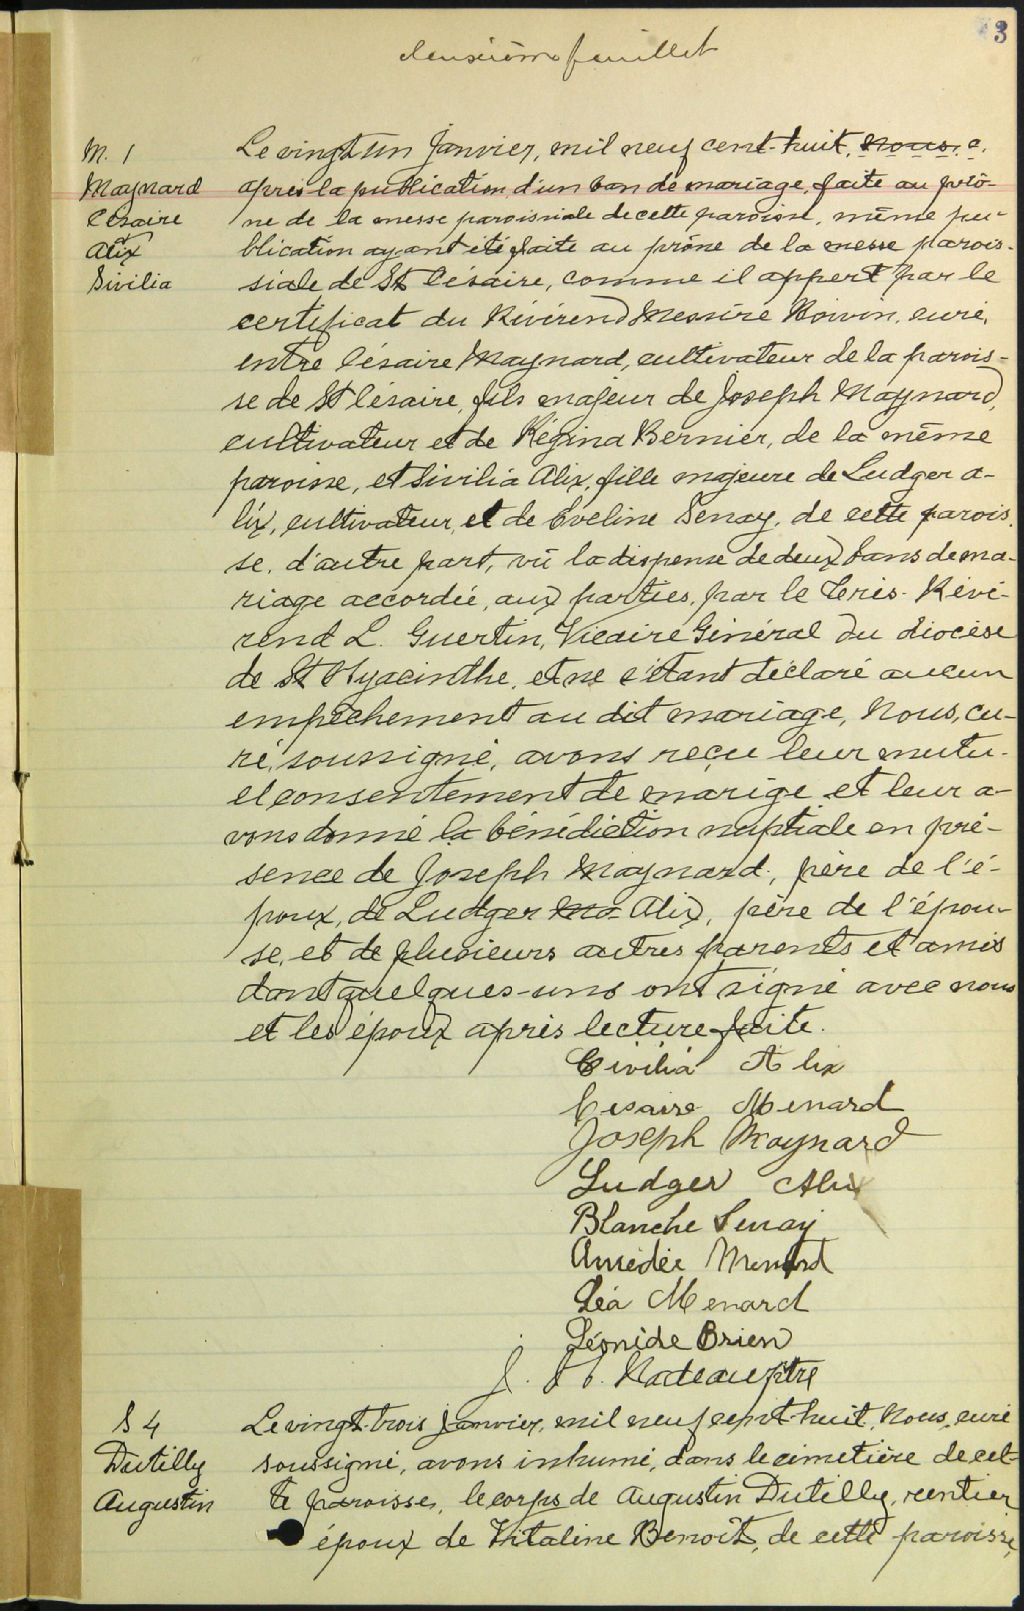 3
deuxième feuillet
M. 1
Maynard
Césaire
&
Alix
Sivilia
Le vingt un Janvier, mil neuf cent-huit, nous, c,
après la publication d'un ban de mariage, faite au prô-
ne de la messe paroissiale de cette paroisse, même pu-
blication ayant été faite au prône de la messe parois-
siale de St Césaire, comme il appert par le
certificat du Révérend Messire Boivin, curé,
entre Césaire Maynard, cultivateur de la parois-
se de St Césaire, fils majeur de Joseph Maynard,
cultivateur et de Régina Bernier, de la même
paroisse, et Sivilia Alix, fille majeure de Ludger a-
lix, cultivateur, et de Eveline Senay, de cette parois-
se, d'autre part, vû la dispense de deux bans de ma-
riage accordée, aux parties, par le Très-Révé-
rend L. Guertin, Vicaire Général du diocèse
de St Hyacinthe, et ne s'étant déclaré aucun
empêchement au dit mariage, Nous, cu-
ré, soussigné, avons reçu leur mutu-
el consentement de marige et leur a-
vons donné la bénédiction nuptiale en pré-
sence de Joseph Maynard, père de l'é-
poux, de Ludger Ma Alix, père de l'épou-
se, et de plusieurs autres parents et amis
dont quelques-uns ont signé avec nous
et les époux après lecture faite.
Civilia Alix
Cesaire Menard
Joseph Maynard
Ludger Alix
Blanche Senay
Amédée Menard
Léa Menard
Léonide Brien
J. Nadeau ptre
S 4
Dutilly
Augustin
Le vingt-trois Janvier, mil neuf cent-huit, Nous, curé
soussigné, avons inhumé, dans le cimetière de cet-
te paroisse, le corps de Augustin Dutilly, rentier
époux de Vitaline Benoît, de cette paroisse,